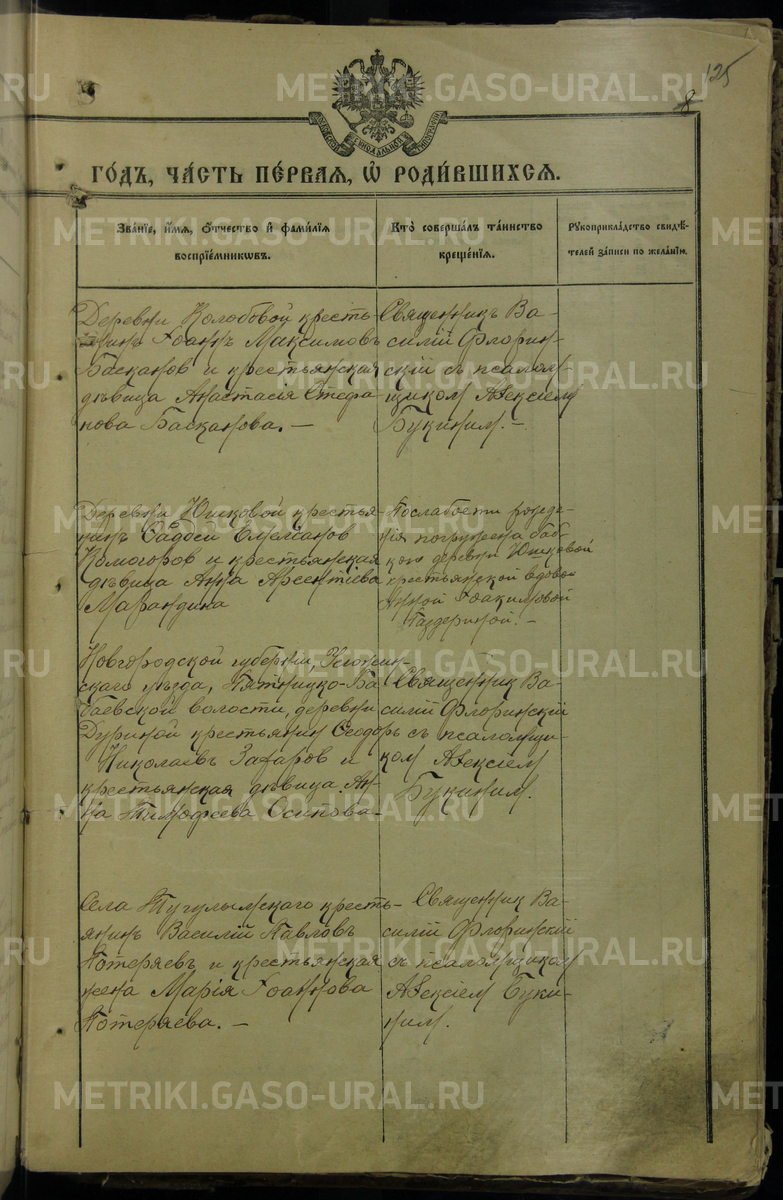 125
8
ГОДЪ, ЧАСТЬ ПЕРВАЯ, Ѡ РОДИВШИХСЯ.
Званіе, имя, отчество и фамилія
воспріемниковъ.
Кто совершалъ таинство
крещенія.
Рукоприкладство свидѣ-
телей записи по желанію.
Деревни Колобовой кресть-
янинъ Іоаннъ Максимовъ
Басканов и крестьянская
дѣвица Анастасія Стефа-
нова Басканова. —
Священникъ Ва-
силій Флорин-
скій съ псалом-
щиком Алексѣем
Букиним. —
Деревни Юшковой крестья-
нинъ Фаддей Емелианов
Комогоров и крестьянская
дѣвица Анна Арсентіева
Марандина
По слабости рожде-
нія погружена баб-
кою деревни Юшковой
крестьянской вдовой
Анной Іоакимовой
Новгородской губерніи, Устюжн-
скаго уѣзда, Пятницко-Ба-
баевской волости, деревни
Дуриной крестьянин Ѳеодоръ
Николаевъ Захаров и
крестьянская дѣвица Ан-
на Тимофеева Осипова —
Священник Ва-
силій Флоринскій
съ псаломщи-
ком Алексѣем
Букиним.
Села Тугулымскаго кресть-
янинъ Василій Павловъ
Потеряевъ и крестьянская
жена Марія Іоаннова
Потеряева. —
Священник Ва-
силій Флоринскій
съ псаломщиком
Алексѣем Буки-
ним.
METRIKI.GASO-URAL.RU